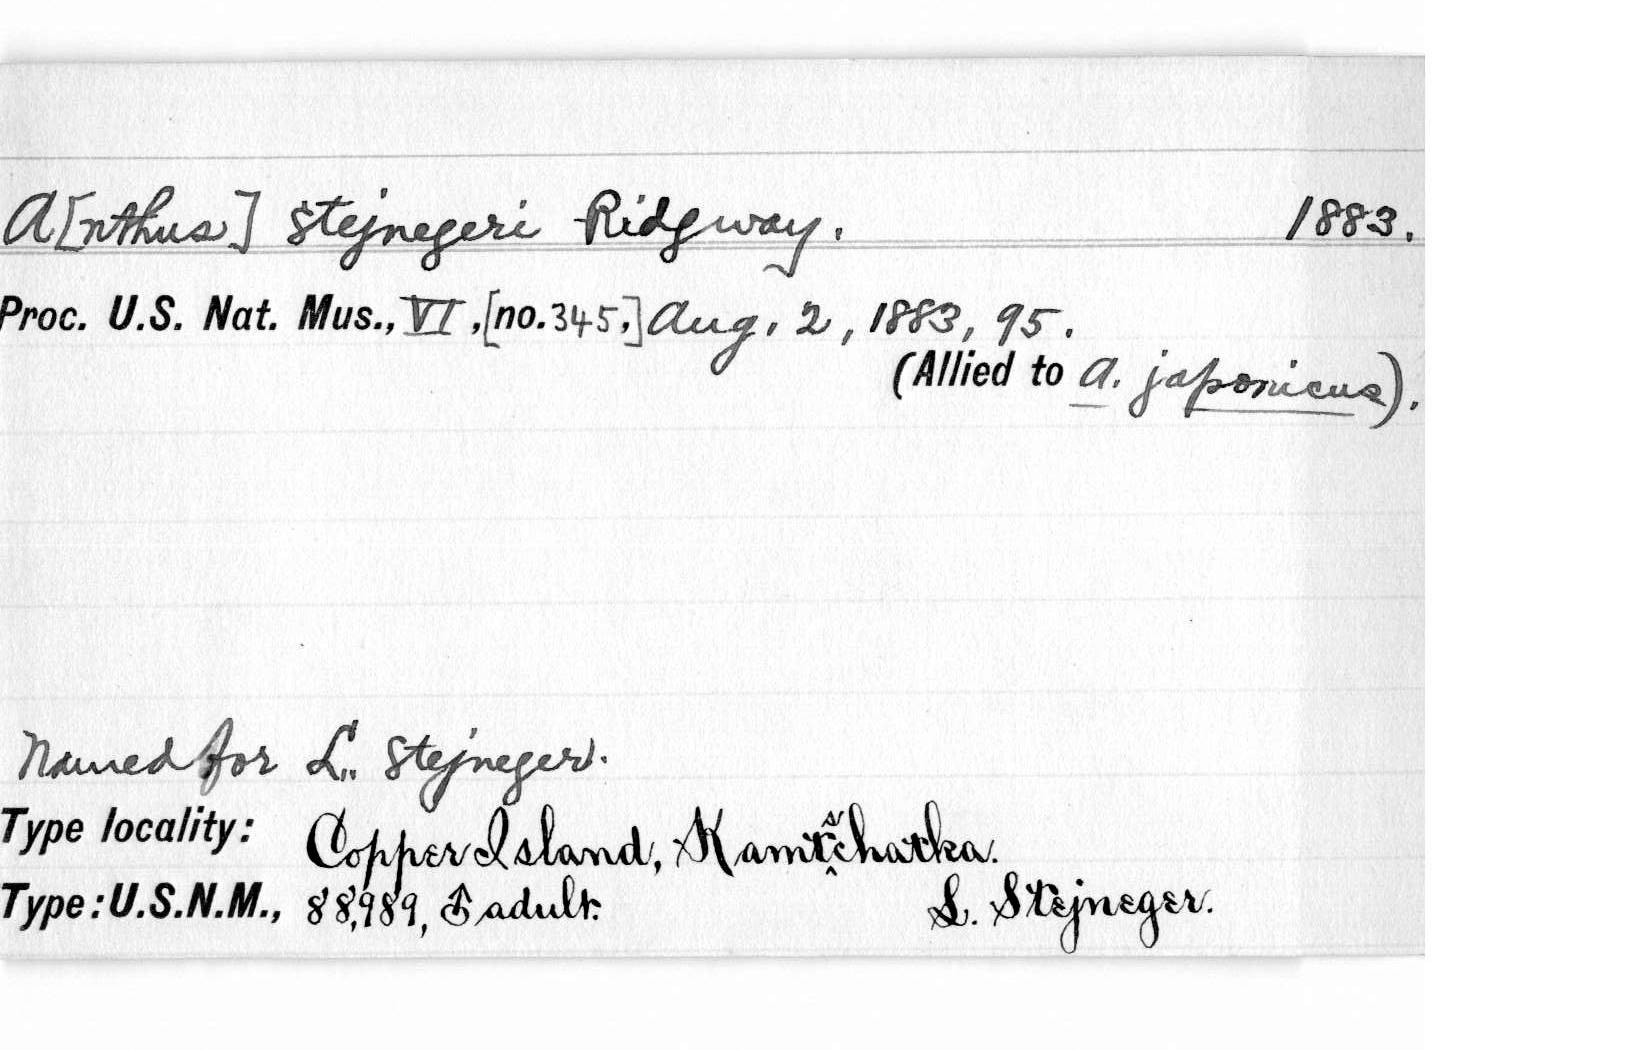 A[nthus] stejnegeri Ridgway. 1883.
Proc. U.S. Nat. Mus., VI, [no. 345,] Aug. 2, 1883, 95.
(Allied to A. japonicus).
Named for L. Stejneger.
Type locality: Copper Island, Kamtschatka.
Type: U.S.N.M., 88,989, ♂ adult. L. Stejneger.